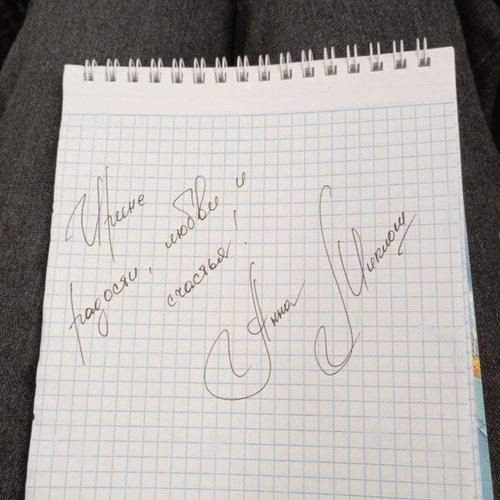 Ирине
радости, любви и
счастья!
Анна Миклош